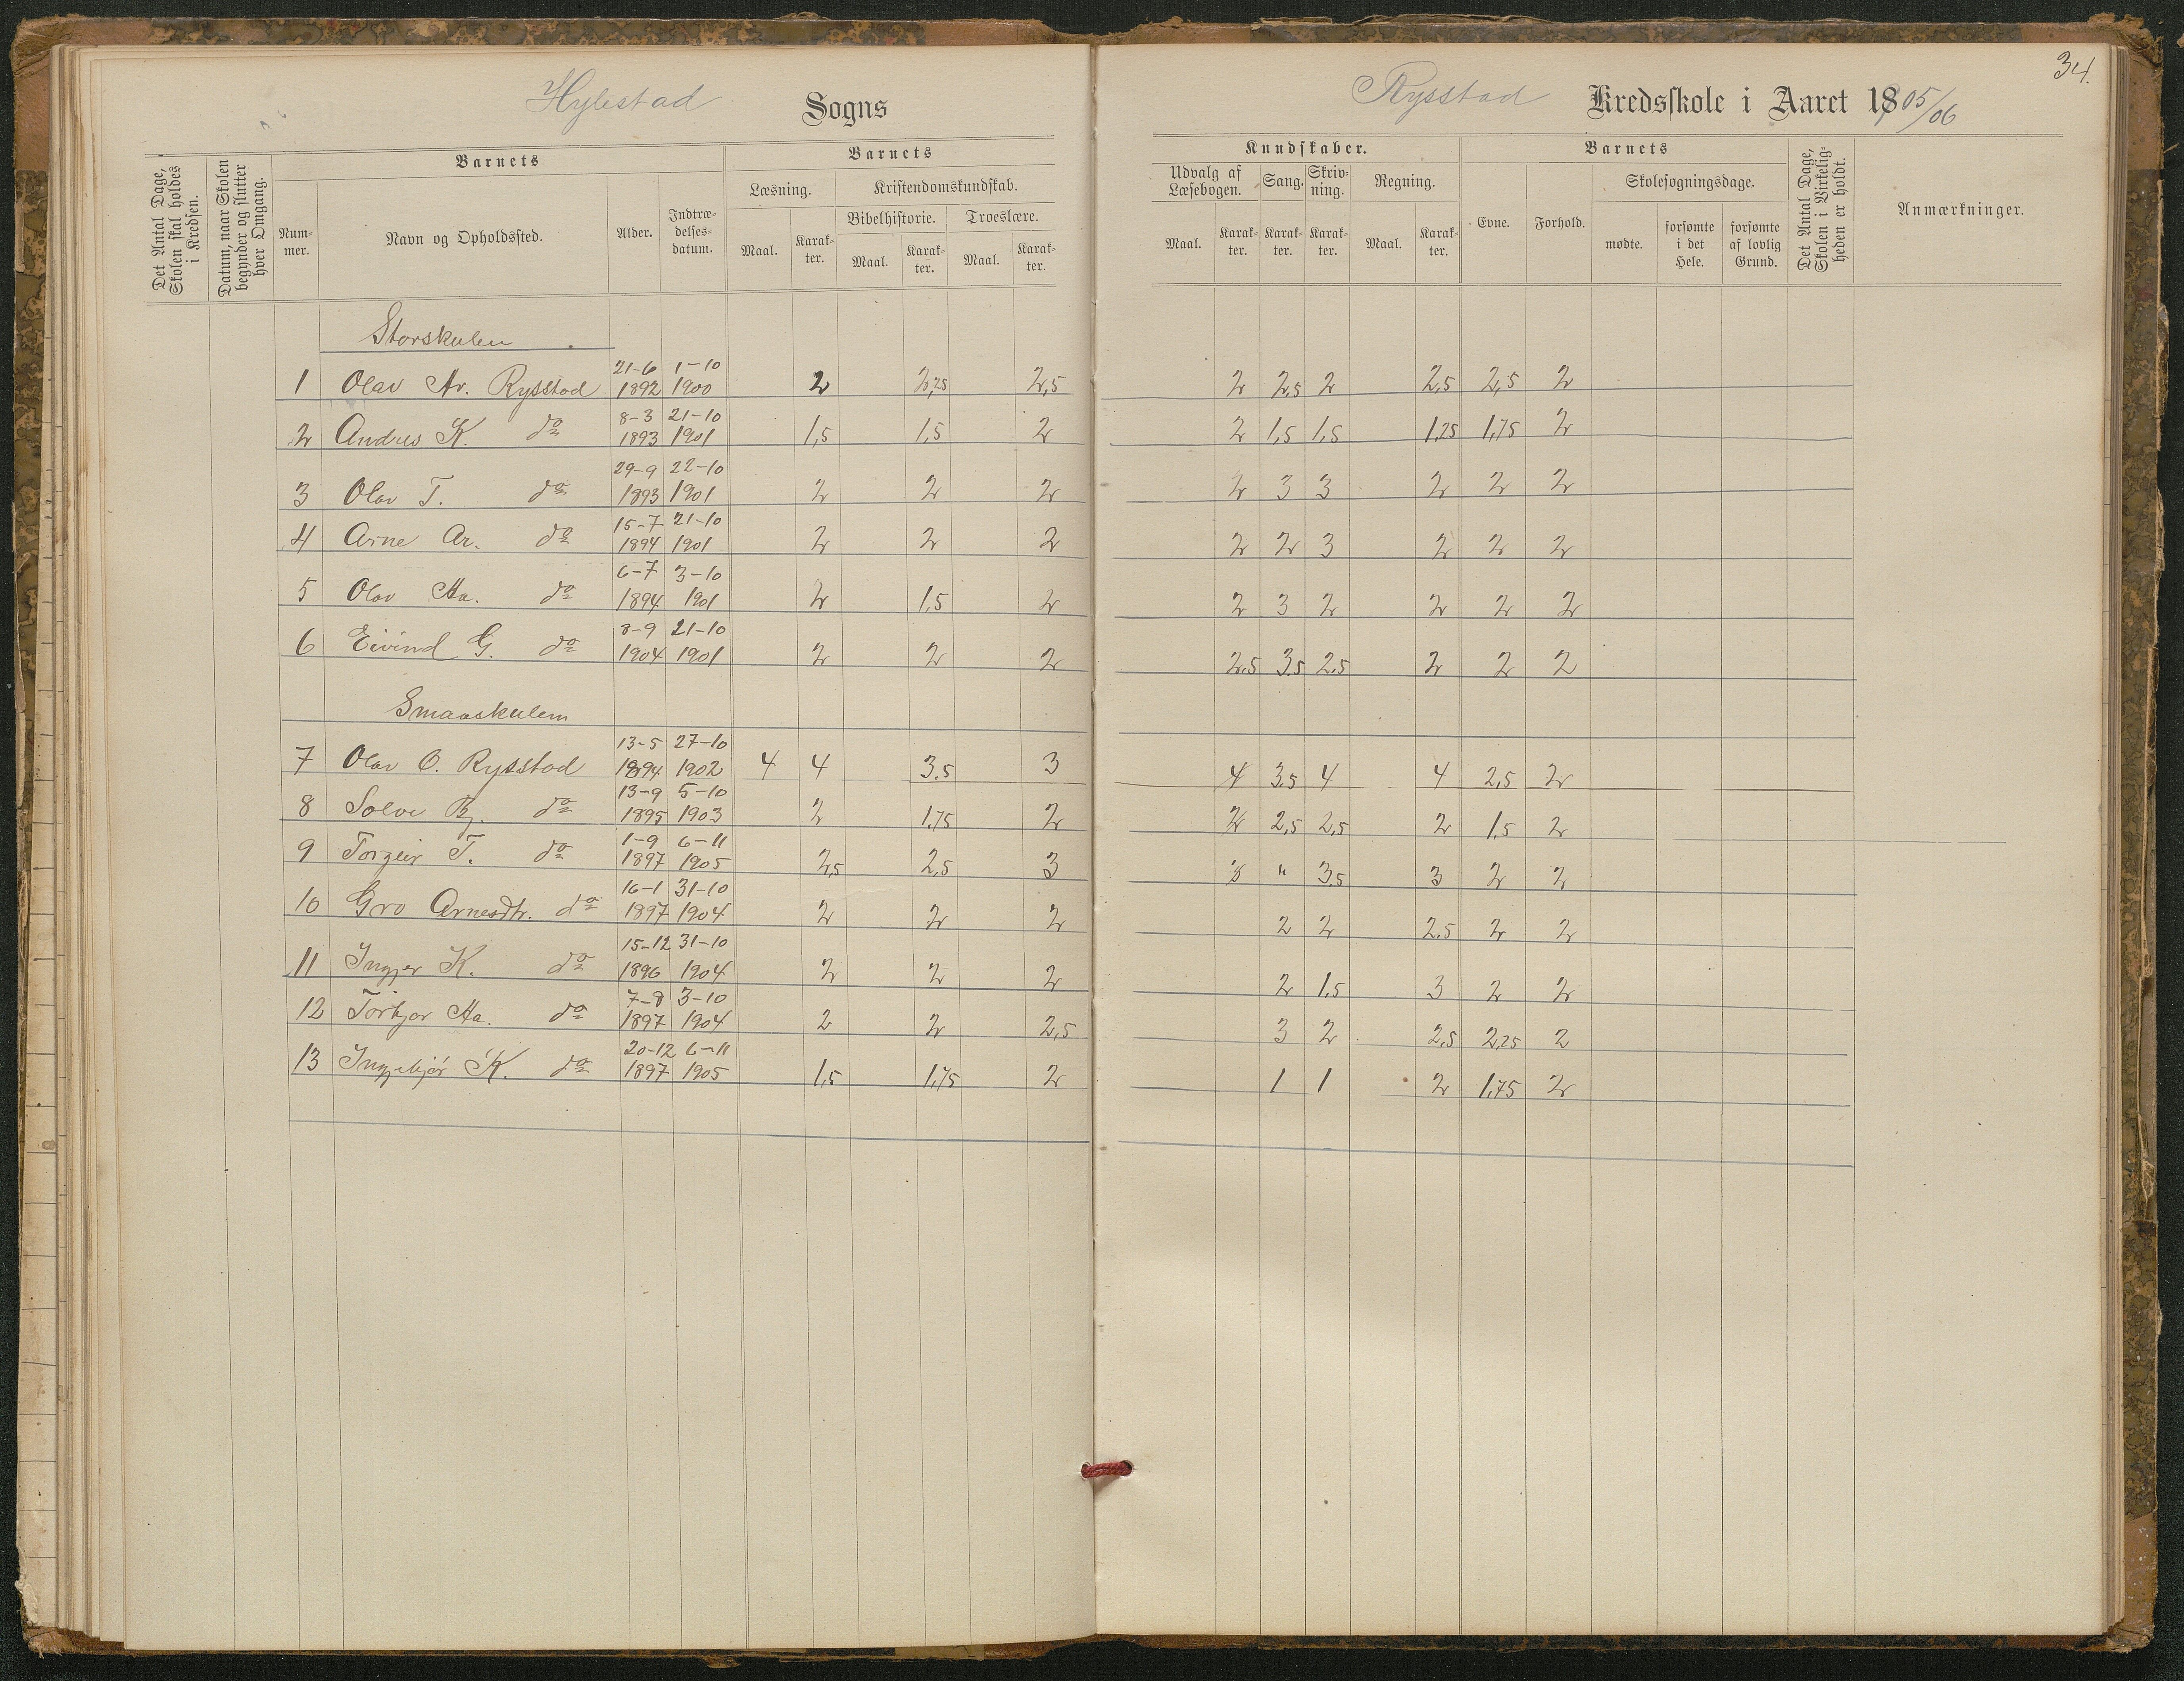 34.
Hylestad Sogns
Rysstad Kredsskole i Aaret 1905/06
Det Antal Dage, Skolen skal holdes i Kredsen.
Datum, naar Skolen begynder og slutter hver Omgang.
Barnets
Nummer.
Navn og Opholdssted.
Alder.
Indtrædelsesdatum.
Barnets
Læsning.
Kristendomskundskab.
Bibelhistorie.
Troeslære.
Maal.
Karakter.
Maal.
Karakter.
Maal.
Karakter.
Kundskaber.
Udvalg af Læsebogen.
Sang.
Skrivning.
Regning.
Maal.
Karakter.
Karakter.
Karakter.
Maal.
Karakter.
Barnets
Evne.
Forhold.
Skolesøgningsdage.
mødte.
forsømte i det Hele.
forsømte af lovlig Grund.
Det Antal Dage, Skolen i Virkeligheden er holdt.
Anmærkninger.
Storskulen
1 Olav Ar. Rysstad 21-6 1892 1-10 1900 2 2,25 2,5 2 2,5 2 2,5 2,5 2
2 Andres K. do 8-3 1893 21-10 1901 1,5 1,5 2 2 1,5 1,5 1,25 1,75 2
3 Olav T. do 29-9 1893 22-10 1901 2 2 2 2 3 3 2 2 2
4 Arne Ar. do 15-7 1894 21-10 1901 2 2 2 2 2 3 2 2 2
5 Olav Ha. do 6-7 1894 3-10 1901 2 1,5 2 2 3 2 2 2 2
6 Eivind G. do 8-9 1904 21-10 1901 2 2 2 2,5 3,5 2,5 2 2 2
Smaaskulen
7 Olav O. Rysstad 13-5 1894 27-10 1902 4 4 3,5 3 4 3,5 4 4 2,5 2
8 Solvi Bj. do 13-9 1895 5-10 1903 2 1,75 2 2 2,5 2,5 2 1,5 2
9 Torgeir T. do 1-9 1897 6-11 1905 2,5 2,5 3 3 " 3,5 3 2 2
10 Gro Arnesdtr. do 16-1 1897 31-10 1904 2 2 2 2 2 2,5 2 2
11 Ingjer K. do 15-12 1896 31-10 1904 2 2 2 2 1,5 3 2 2
12 Torbjor Ha. do 7-8 1897 3-10 1904 2 2 2,5 3 2 2,5 2,25 2
13 Ingebjör K. do 20-12 1897 6-11 1905 1,5 1,75 2 1 1 2 1,75 2